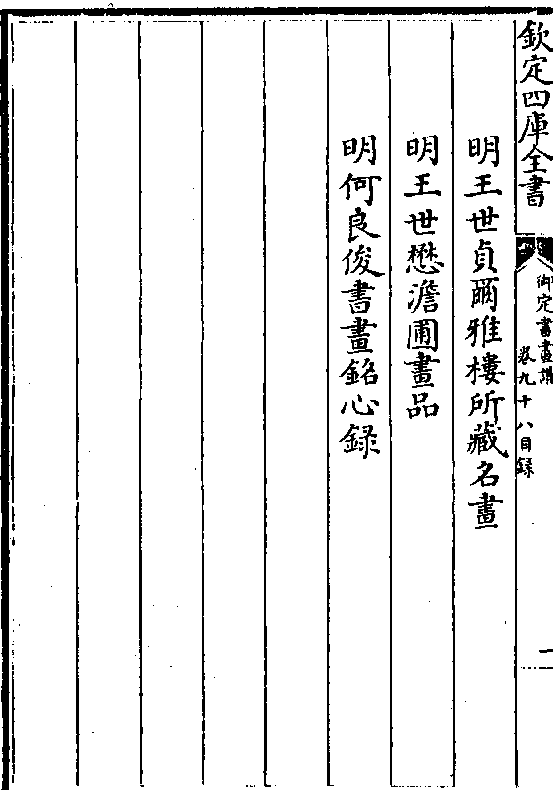 欽定四庫全書
御定書畫譜
卷九十八目録
一
明王世貞爾雅樓所藏名畫
明王世懋澹圃畫品
明何良俊書畫銘心録